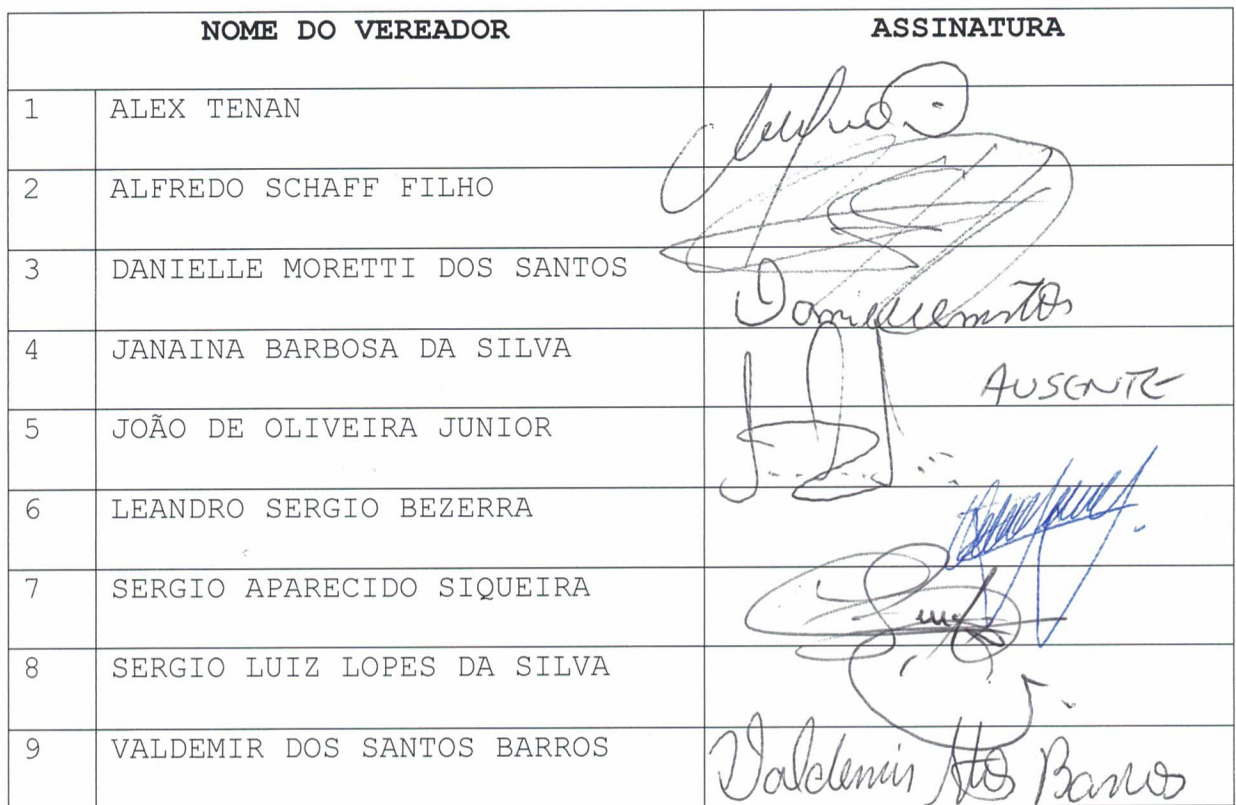 NOME DO VEREADOR ASSINATURA
1 ALEX TENAN
2 ALFREDO SCHAFF FILHO
3 DANIELLE MORETTI DOS SANTOS
4 JANAINA BARBOSA DA SILVA AUSENTE
5 JOÃO DE OLIVEIRA JUNIOR
6 LEANDRO SERGIO BEZERRA
7 SERGIO APARECIDO SIQUEIRA
8 SERGIO LUIZ LOPES DA SILVA
9 VALDEMIR DOS SANTOS BARROS Valdemir Barros